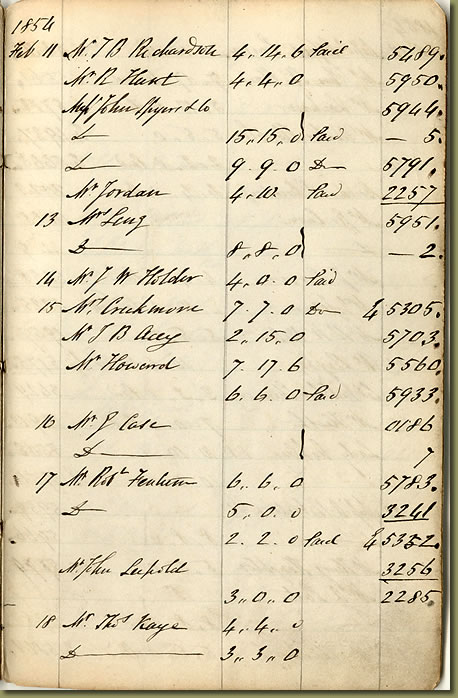 1854
Feb 11 Mr T B Richardson 4 " 14 " 6 Paid 5489.
Mr R Hunt 4 " 4 " 0 5950.
John Myers & Co 5944.
Do 15 " 15 " 0 Paid — 5.
Do 9 " 9 " 0 Do 5791.
Mr Jordan 4 " 10 Paid 2257
13 Mrs Leng 5951.
Do 8 " 8 " 0 — 2.
14 Mr J W Holder 4 " 0 " 0 Paid
15 Mr Crickmore 7 " 7 " 0 Do 5305.
Mr J B Acey 2 " 15 " 0 5703.
Mr Howard 7 " 17 " 6 5560.
6 " 6 " 0 Paid 5933.
16 Mr J Case 0186
Do 7
17 Mr Robt Fentum 6 " 6 " 0 5783.
Do 5 " 0 " 0 3241
2 " 2 " 0 Paid 5352.
Mr John Leipold 3256
3 " 0 " 0 2285
18 Mr Thos Kaye 4 " 4 " 0
Do 3 " 3 " 0